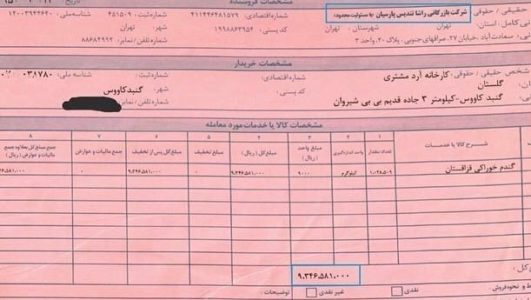 مشخصات فروشنده
حقیقی / حقوقی: شرکت بازرگانی راشا تندیس پارسیان با مسئولیت محدود
شماره اقتصادی: ۴۱۱۴۴۶۴۸۱۵۷۹
شماره ثبت: ۴۵۱۵۰۹
شناسه ملی:
کامل: استان: تهران شهرستان: تهران
کد پستی: ۱۹۹۸۸۶۳۹۵۴
شهر: تهران
سعادت آباد، خیابان ۲۷، صرافهای جنوبی، پلاک ۲۰، واحد ۳
شماره تلفن / نمابر: ۸۸۶۸۴۹۹۲
مشخصات خریدار
شخص حقیقی / حقوقی: کارخانه آرد مشتری
شماره اقتصادی:
شماره ثبت / شماره ملی: ۰۳۱۷۸۰
گلستان
کد پستی:
شهر: گنبدکاووس
گنبد کاووس-کیلومتر ۳ جاده قدیم بی بی شیروان
شماره تلفن / نمابر:
مشخصات کالا یا خدمات مورد معامله
۱ ۲ ۳ ۴ ۵ ۶ ۷ ۸
شرح کالا یا خدمات تعداد مقدار واحد اندازه‌گیری مبلغ واحد (ریال) مبلغ کل (ریال) مبلغ تخفیف مبلغ کل پس از تخفیف جمع مالیات و عوارض (ریال) جمع مبلغ کل بعلاوه جمع مالیات و عوارض (ریال)
گندم خوراکی قزاقستان کیلوگرم ۹۰۰۰ ۹،۳۴۶،۵۸۱،۰۰۰ ۰ ۹،۳۴۶،۵۸۱،۰۰۰ ۰
کل: ۹،۳۴۶،۵۸۱،۰۰۰
و نحوه فروش نقدی غیر نقدی توضیحات: